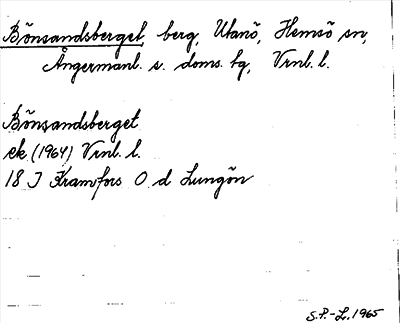 Bönsandsberget, berg, Utanö, Hemsö sn,
Ångermanl. s. doms. tg, Vrnl. l.
Bönsandsberget
ek (1964) Vrnl. l.
18 J Kramfors O d Lungön
S.P.-L. 1965